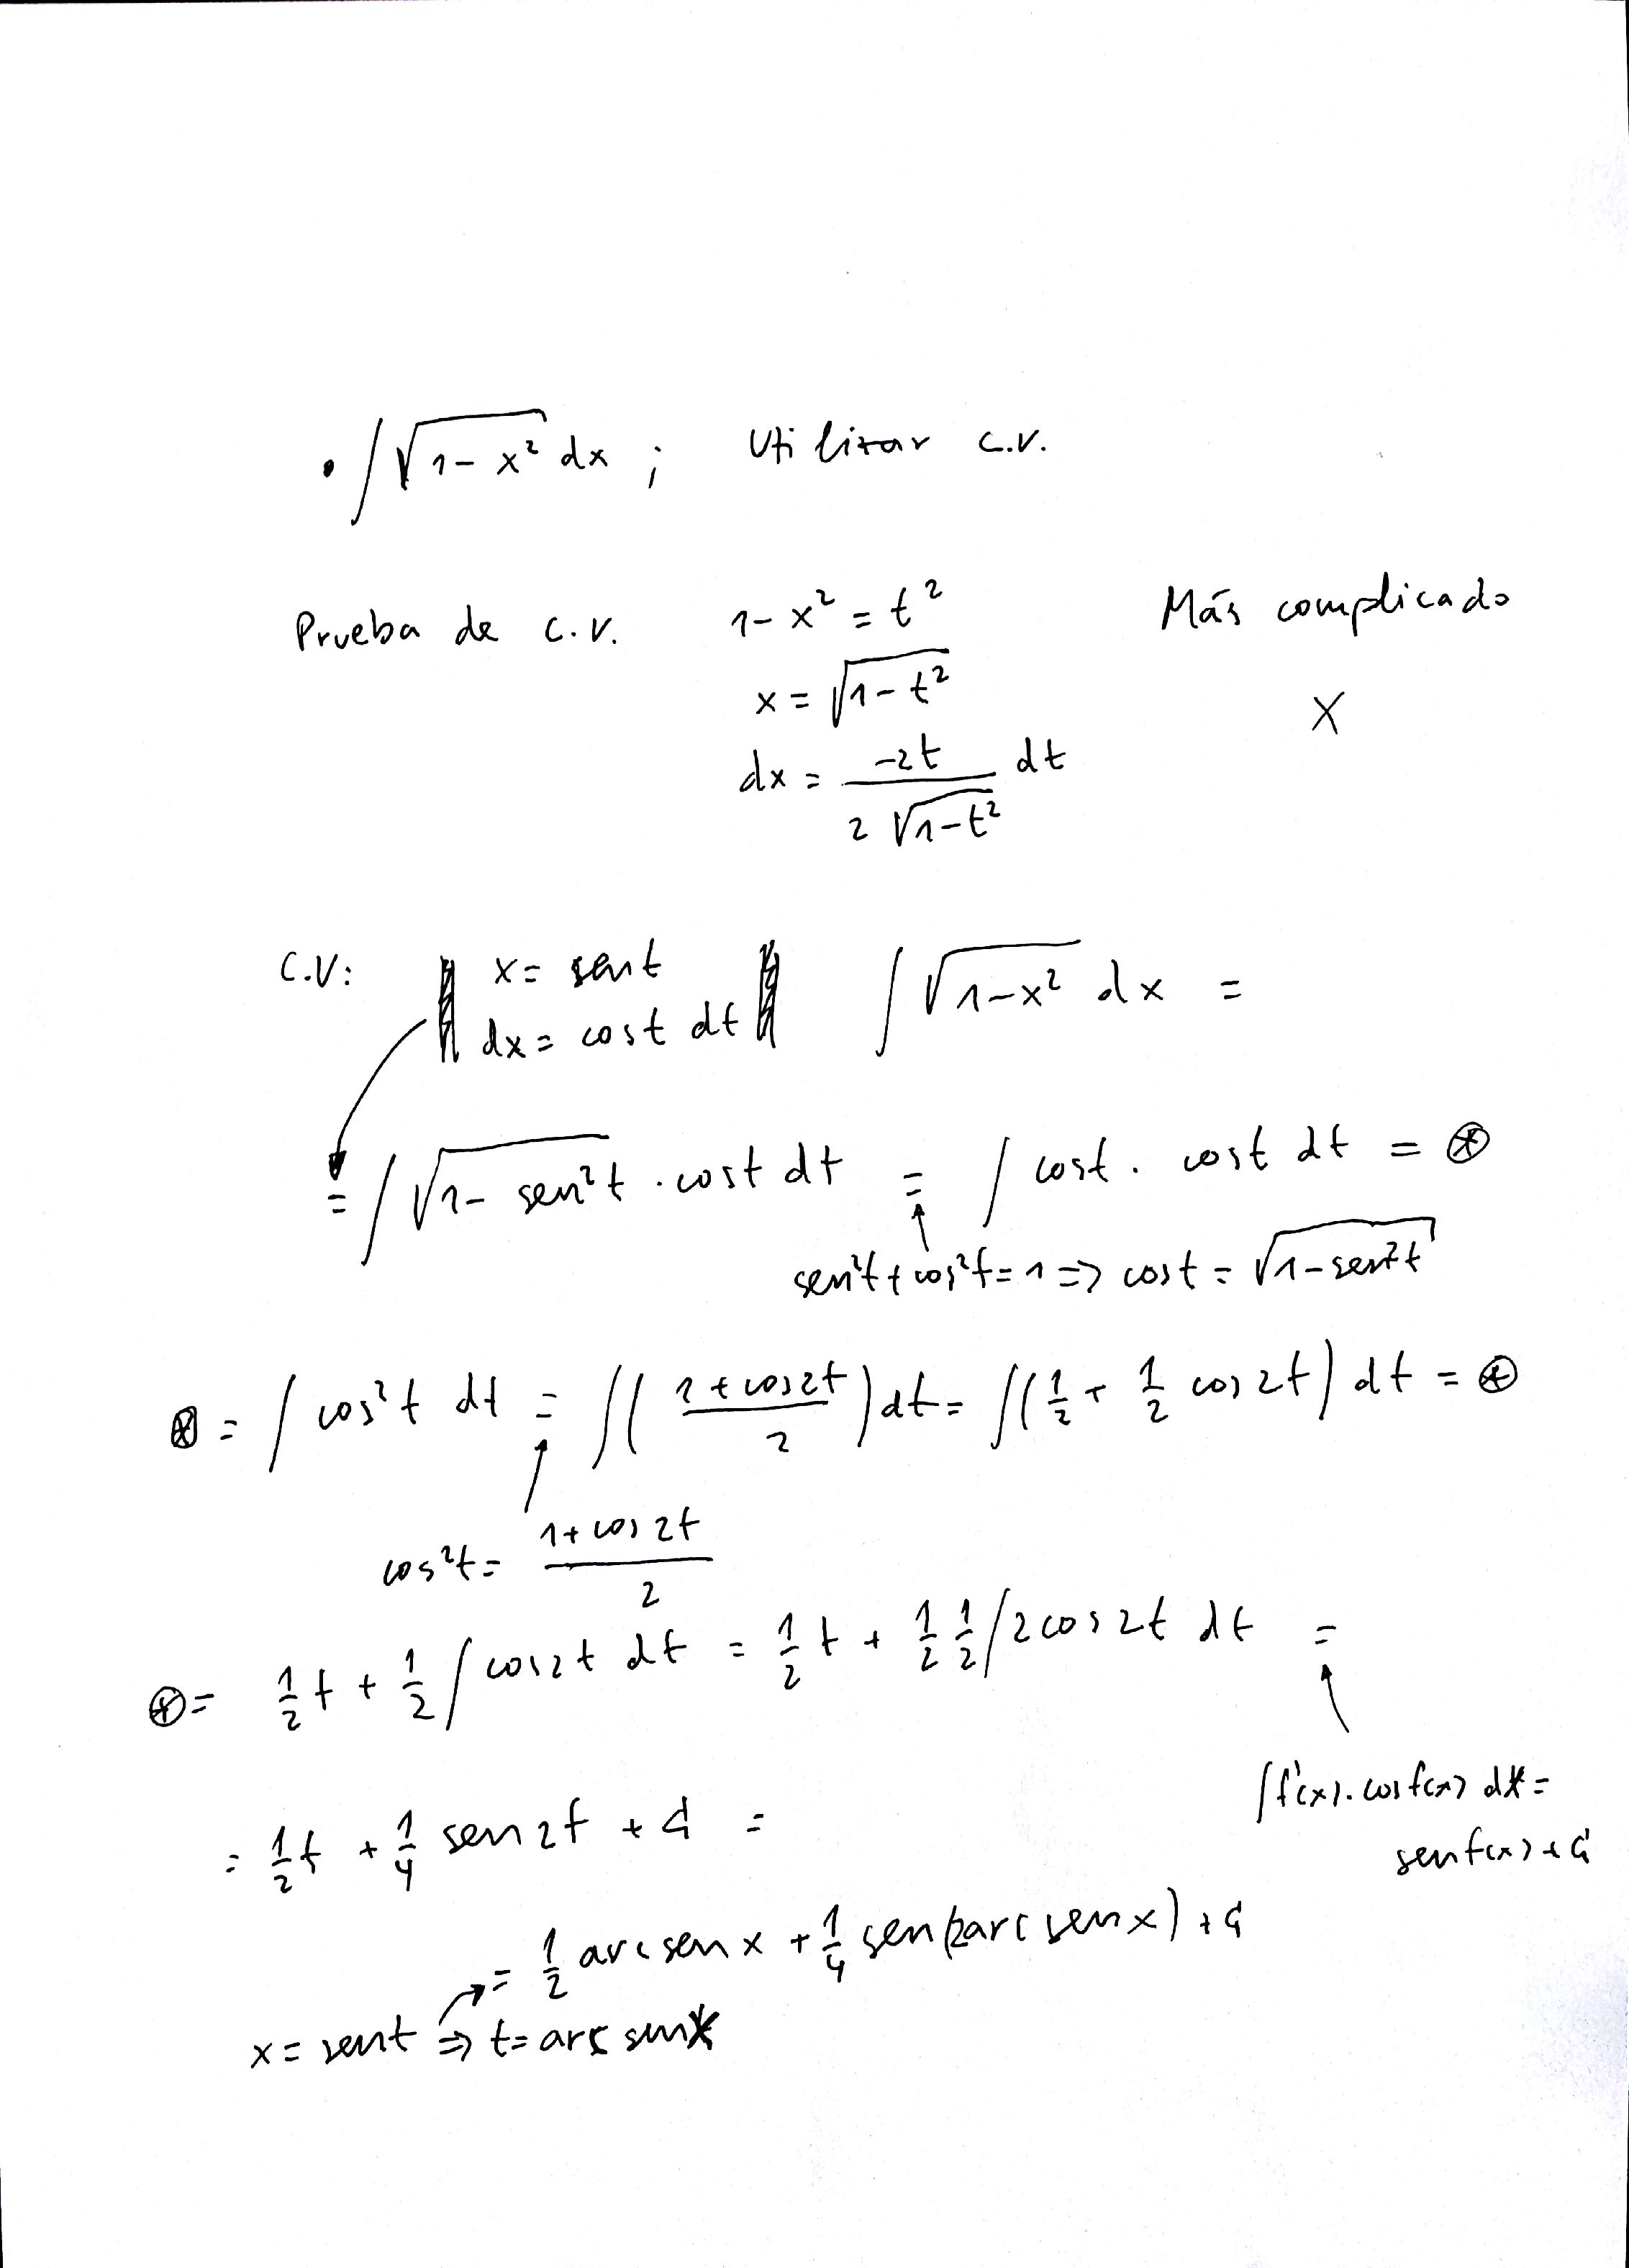 • ∫√(1-x²) dx ; Utilizar C.V.
Prueba de C.V. 1-x² = t² Más complicado
x = √(1-t²) X
dx = -2t / (2√(1-t²)) dt
C.V: x = sen t ∫√(1-x²) dx =
dx = cos t dt
= ∫√(1-sen²t) · cos t dt = ∫ cos t · cos t dt = ⊛
sen²t + cos²t = 1 => cos t = √(1-sen²t)
⊛ = ∫ cos²t dt = ∫( (1+cos2t)/2 ) dt = ∫( 1/2 + 1/2 cos2t ) dt = ⊛
cos²t = (1+cos 2t)/2
⊛ = 1/2 t + 1/2 ∫ cos2t dt = 1/2 t + 1/2 1/2 ∫ 2 cos 2t dt =
∫ f'(x) · cos f(x) dx =
sen f(x) + C
= 1/2 t + 1/4 sen 2t + C =
= 1/2 arc sen x + 1/4 sen(2 arc sen x) + C
x = sen t => t = arc sen x